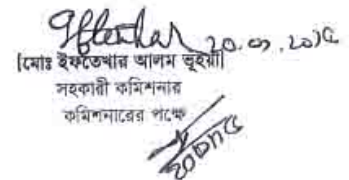 Iftekhar 20.০১.২০১৫
[মোঃ ইফতেখার আলম ভূইয়া]
সহকারী কমিশনার
কমিশনারের পক্ষে